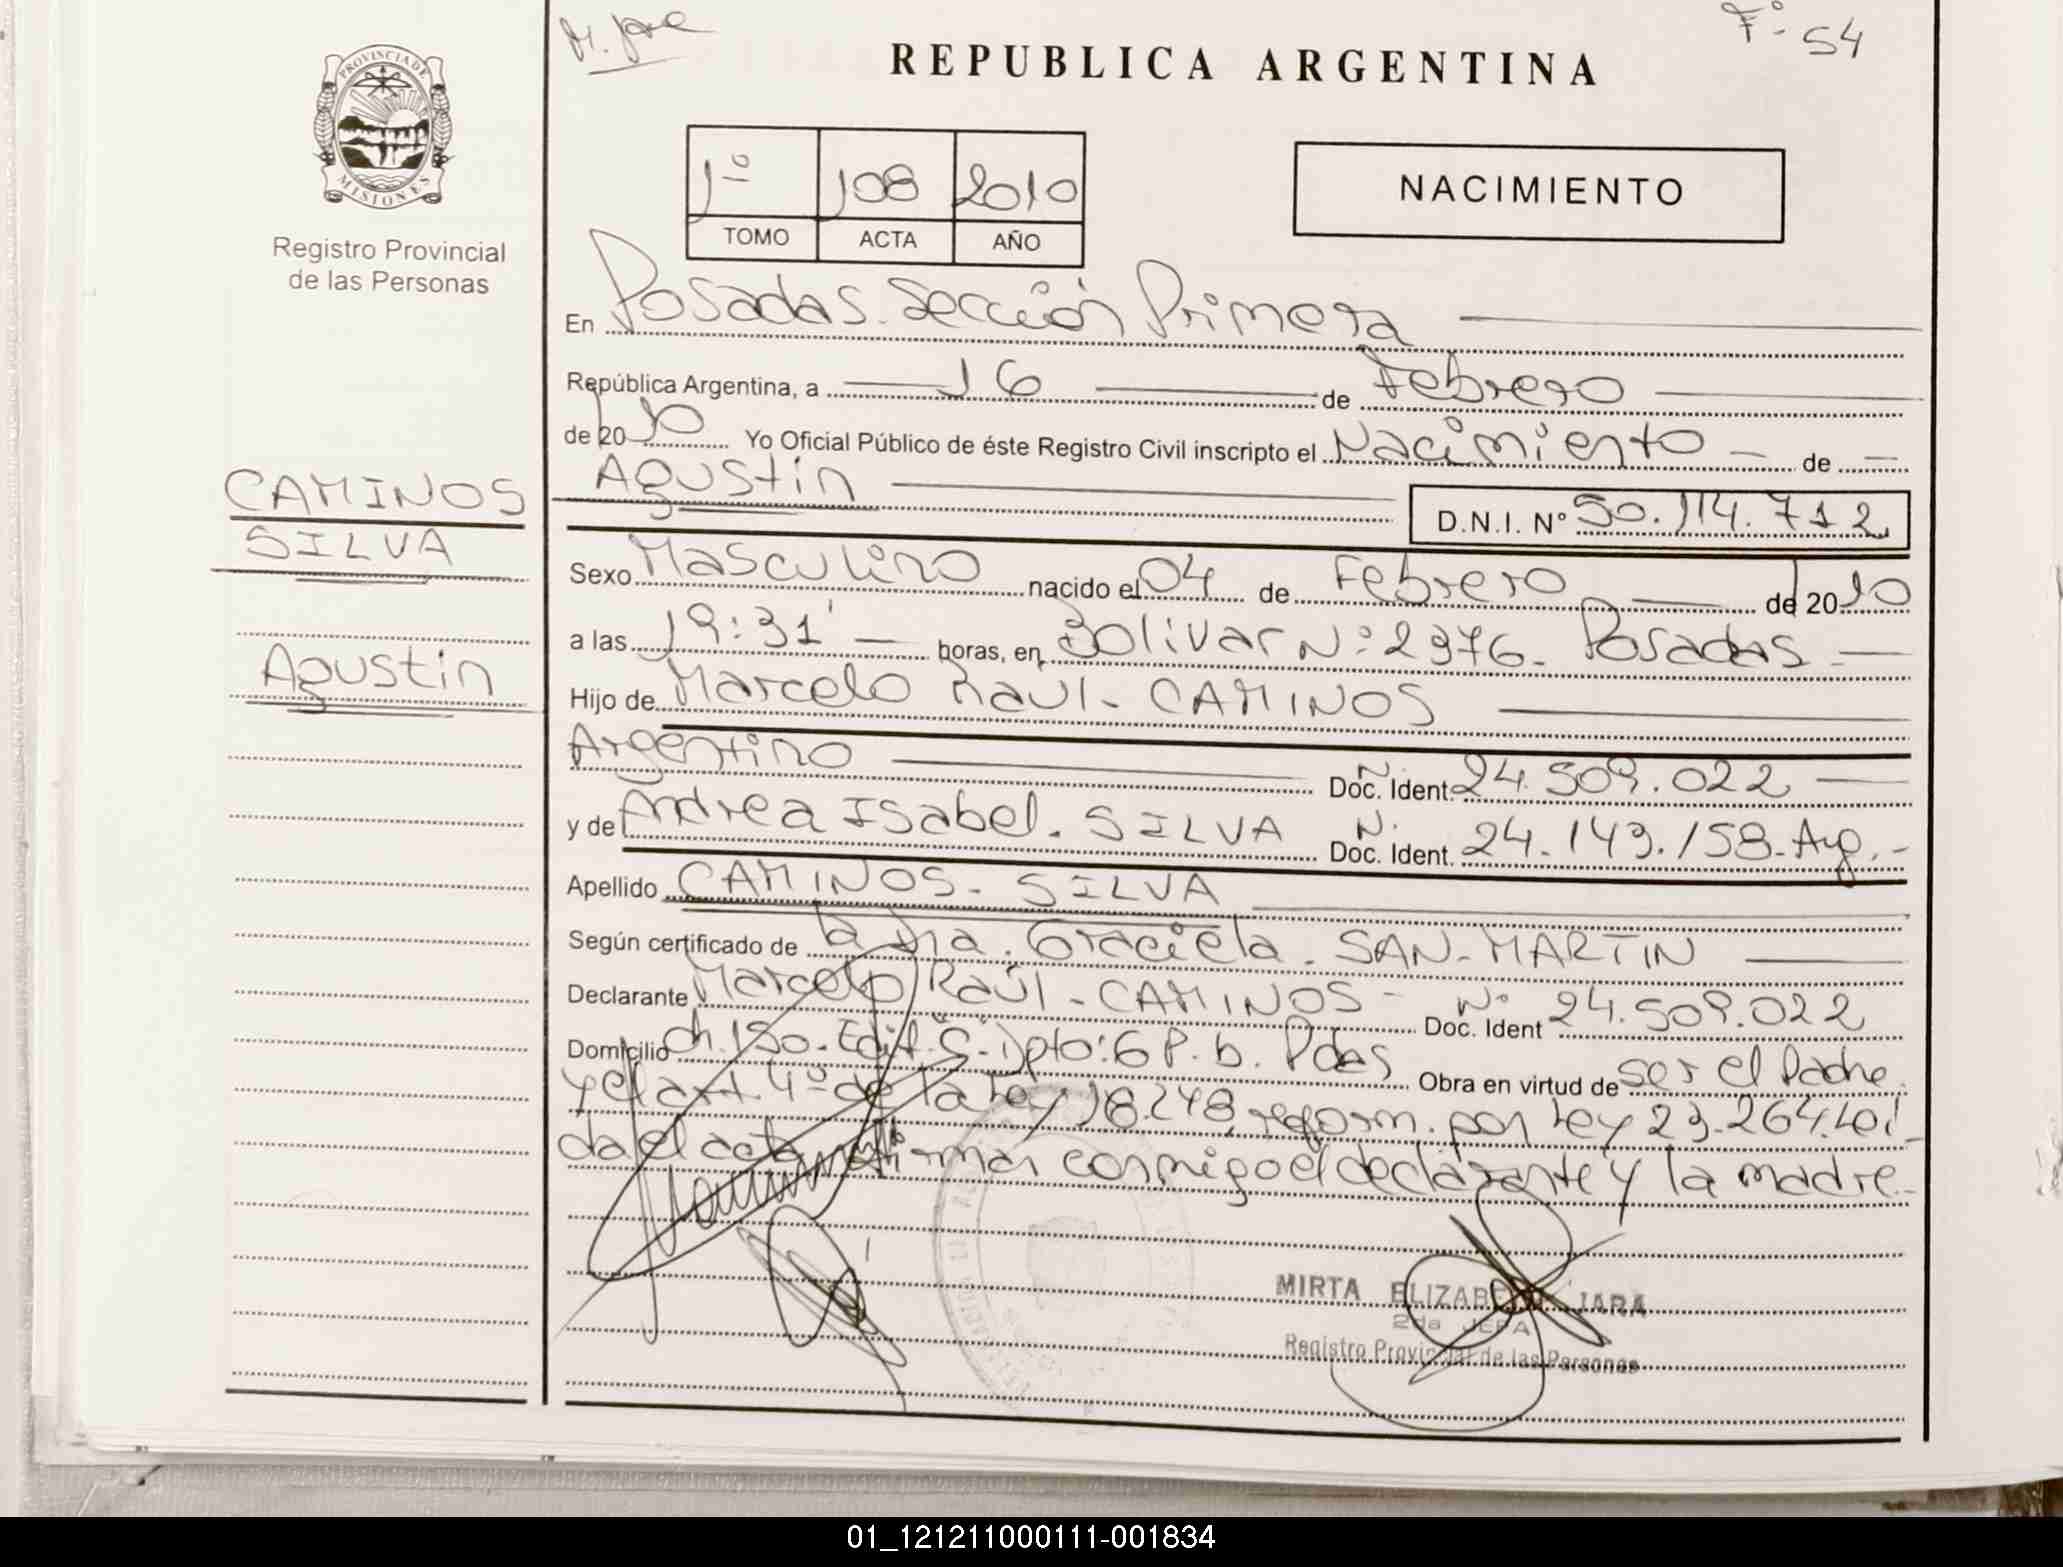 M. Jara
Fº 54
PROVINCIA DE
MISIONES
Registro Provincial
de las Personas
REPUBLICA ARGENTINA
1º 108 2010
TOMO ACTA AÑO
NACIMIENTO
En Posadas. Sección Primera
República Argentina, a 16 de Febrero
de 2010 Yo Oficial Público de éste Registro Civil inscripto el Nacimiento de
Agustín
D.N.I. Nº 50.114.712
CAMINOS
SILVA
Agustín
Sexo Masculino nacido el 04 de Febrero de 2010
a las 19:31' horas, en Bolivar Nº: 2376. Posadas
Hijo de Marcelo Raúl - CAMINOS
Argentino Doc. Ident. N. 24.509.022
y de Andrea Isabel. SILVA Doc. Ident. N. 24.143.158-Arg.-
Apellido CAMINOS - SILVA
Según certificado de la Dra. Graciela. SAN-MARTIN
Declarante Marcelo Raúl - CAMINOS - Doc. Ident Nº 24.509.022
Domicilio Ch. 150. Edif. "C". Dpto: 6 P. b. Pdas Obra en virtud de ser el Padre
y el art. 4º de la Ley 18.248, reform. por Ley 23.264. Leí-
da el acta firman conmigo el declarante y la madre.-
MIRTA ELIZABETH JARA
2da JEFA
Registro Provincial de las Personas
01_121211000111-001834